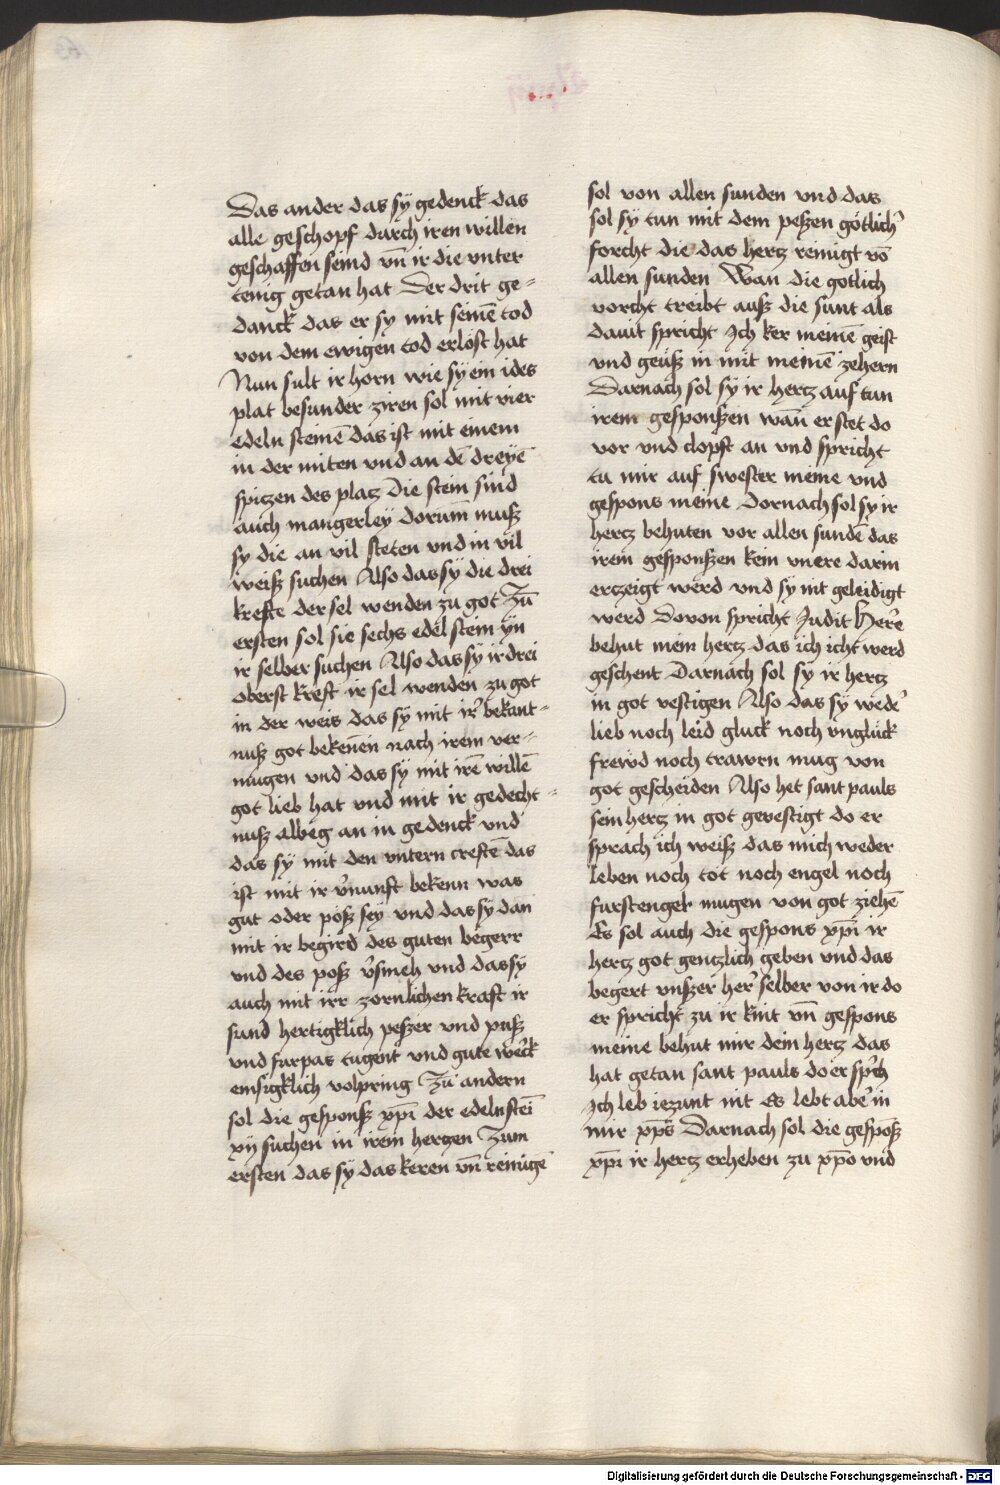 Das ander das sy̎ gedenck das
alle geschopf durch iren willen
geschaffen seind vn̄ ir die vnter
tenig getan hat Der drit ge=
danck das er sy mit seinē tod
von dem ewigen tod erlost hat
Nun sult ir horn wie sy̎ ein ides
plat besunder ziren sol mit vier
edeln steinē das ist mit einem
in der miten vnd an dē dreyē
spitzen des platz Die stein sind
auch mangerley̎ dorum̄ muß
sy die an vil steten vnd in vil
weiß suchen Also das sy̎ die drei
krefte der sel wenden zu got Zū
ersten sol sie sechs edel stein yn
ir selber suchen Also das sy̎ ir drei
oberst kreft ir sel wenden zu got
in der weis das sy̎ mit ir̄ bekant=
nuß got bekenen nach irem ver=
mugen vnd das sy̎ mit irē willē
got lieb hat vnd mit ir gedecht=
nuß alweg an in gedenck vnd
das sy̎ mit den vntern creftē das
ist mit ir v̄nunft bekenn was
gut oder pöß sey̎ vnd das sy̎ dan
mit ir begird des guten begerr
vnd des poß v̄smeh vnd das sy̎
auch mit irr zornlichen kraft ir
sund hertigklich peßer vnd puß
vnd furpas tugent vnd gute werck
emsigklich volpring Zu andern
sol die gesponß xp̄i der edeln stei
xij suchen in irem hertzen Zum
ersten das sy̎ das keren vn̄ reinige
sol von allen sunden vnd das
sol sy tun mit dem peßen götlich̄
forcht die das hertz reinigt vō
allen sunden Wan die gotlich
vorcht treibt auß die sunt als
dauit spricht Ich ker meinē geist
vnd geuß in mit meinē zehern
Darnach sol sy̎ ir hertz auf tun
irem gesponßen wan̄ er stet do
vor vnd clopft an vnd spricht
tu mir auf swester meine vnd
gespons meine Dornach sol sy̎ ir
hertz behuten vor allen sundē das
irem gesponßen kein vnere darin
erzeigt werd vnd sy̎ nit geleidigt
werd Dovon spricht Judit Her̄e
behut mein hertz das ich icht werd
geschent Darnach sol sy̎ ir hertz
in got vestigen Also das sy̎ wed̄e
lieb noch leid gluck noch vngluck
frewd noch trawrn mug von
got gescheiden Also het sant pauls
sein hertz in got gevestigt do er
sprach ich weiß das mich weder
leben noch tot noch engel noch
furstengel mugen von got ziehē
Es sol auch die gespons xp̄i ir
hertz got gentzlich geben vnd das
begert vnßer her̄ selber von ir do
er spricht zu ir kint vn̄ gespons
meine behut mir dein hertz das
hat getan sant pauls do er sp̄ch
Ich leb iezunt nit Es lebt ab̄e in
mir xp̄s Darnach sol die gespōß
xp̄i ir hertz erheben zu xp̄o vnd
Digitalisierung gefördert durch die Deutsche Forschungsgemeinschaft - DFG